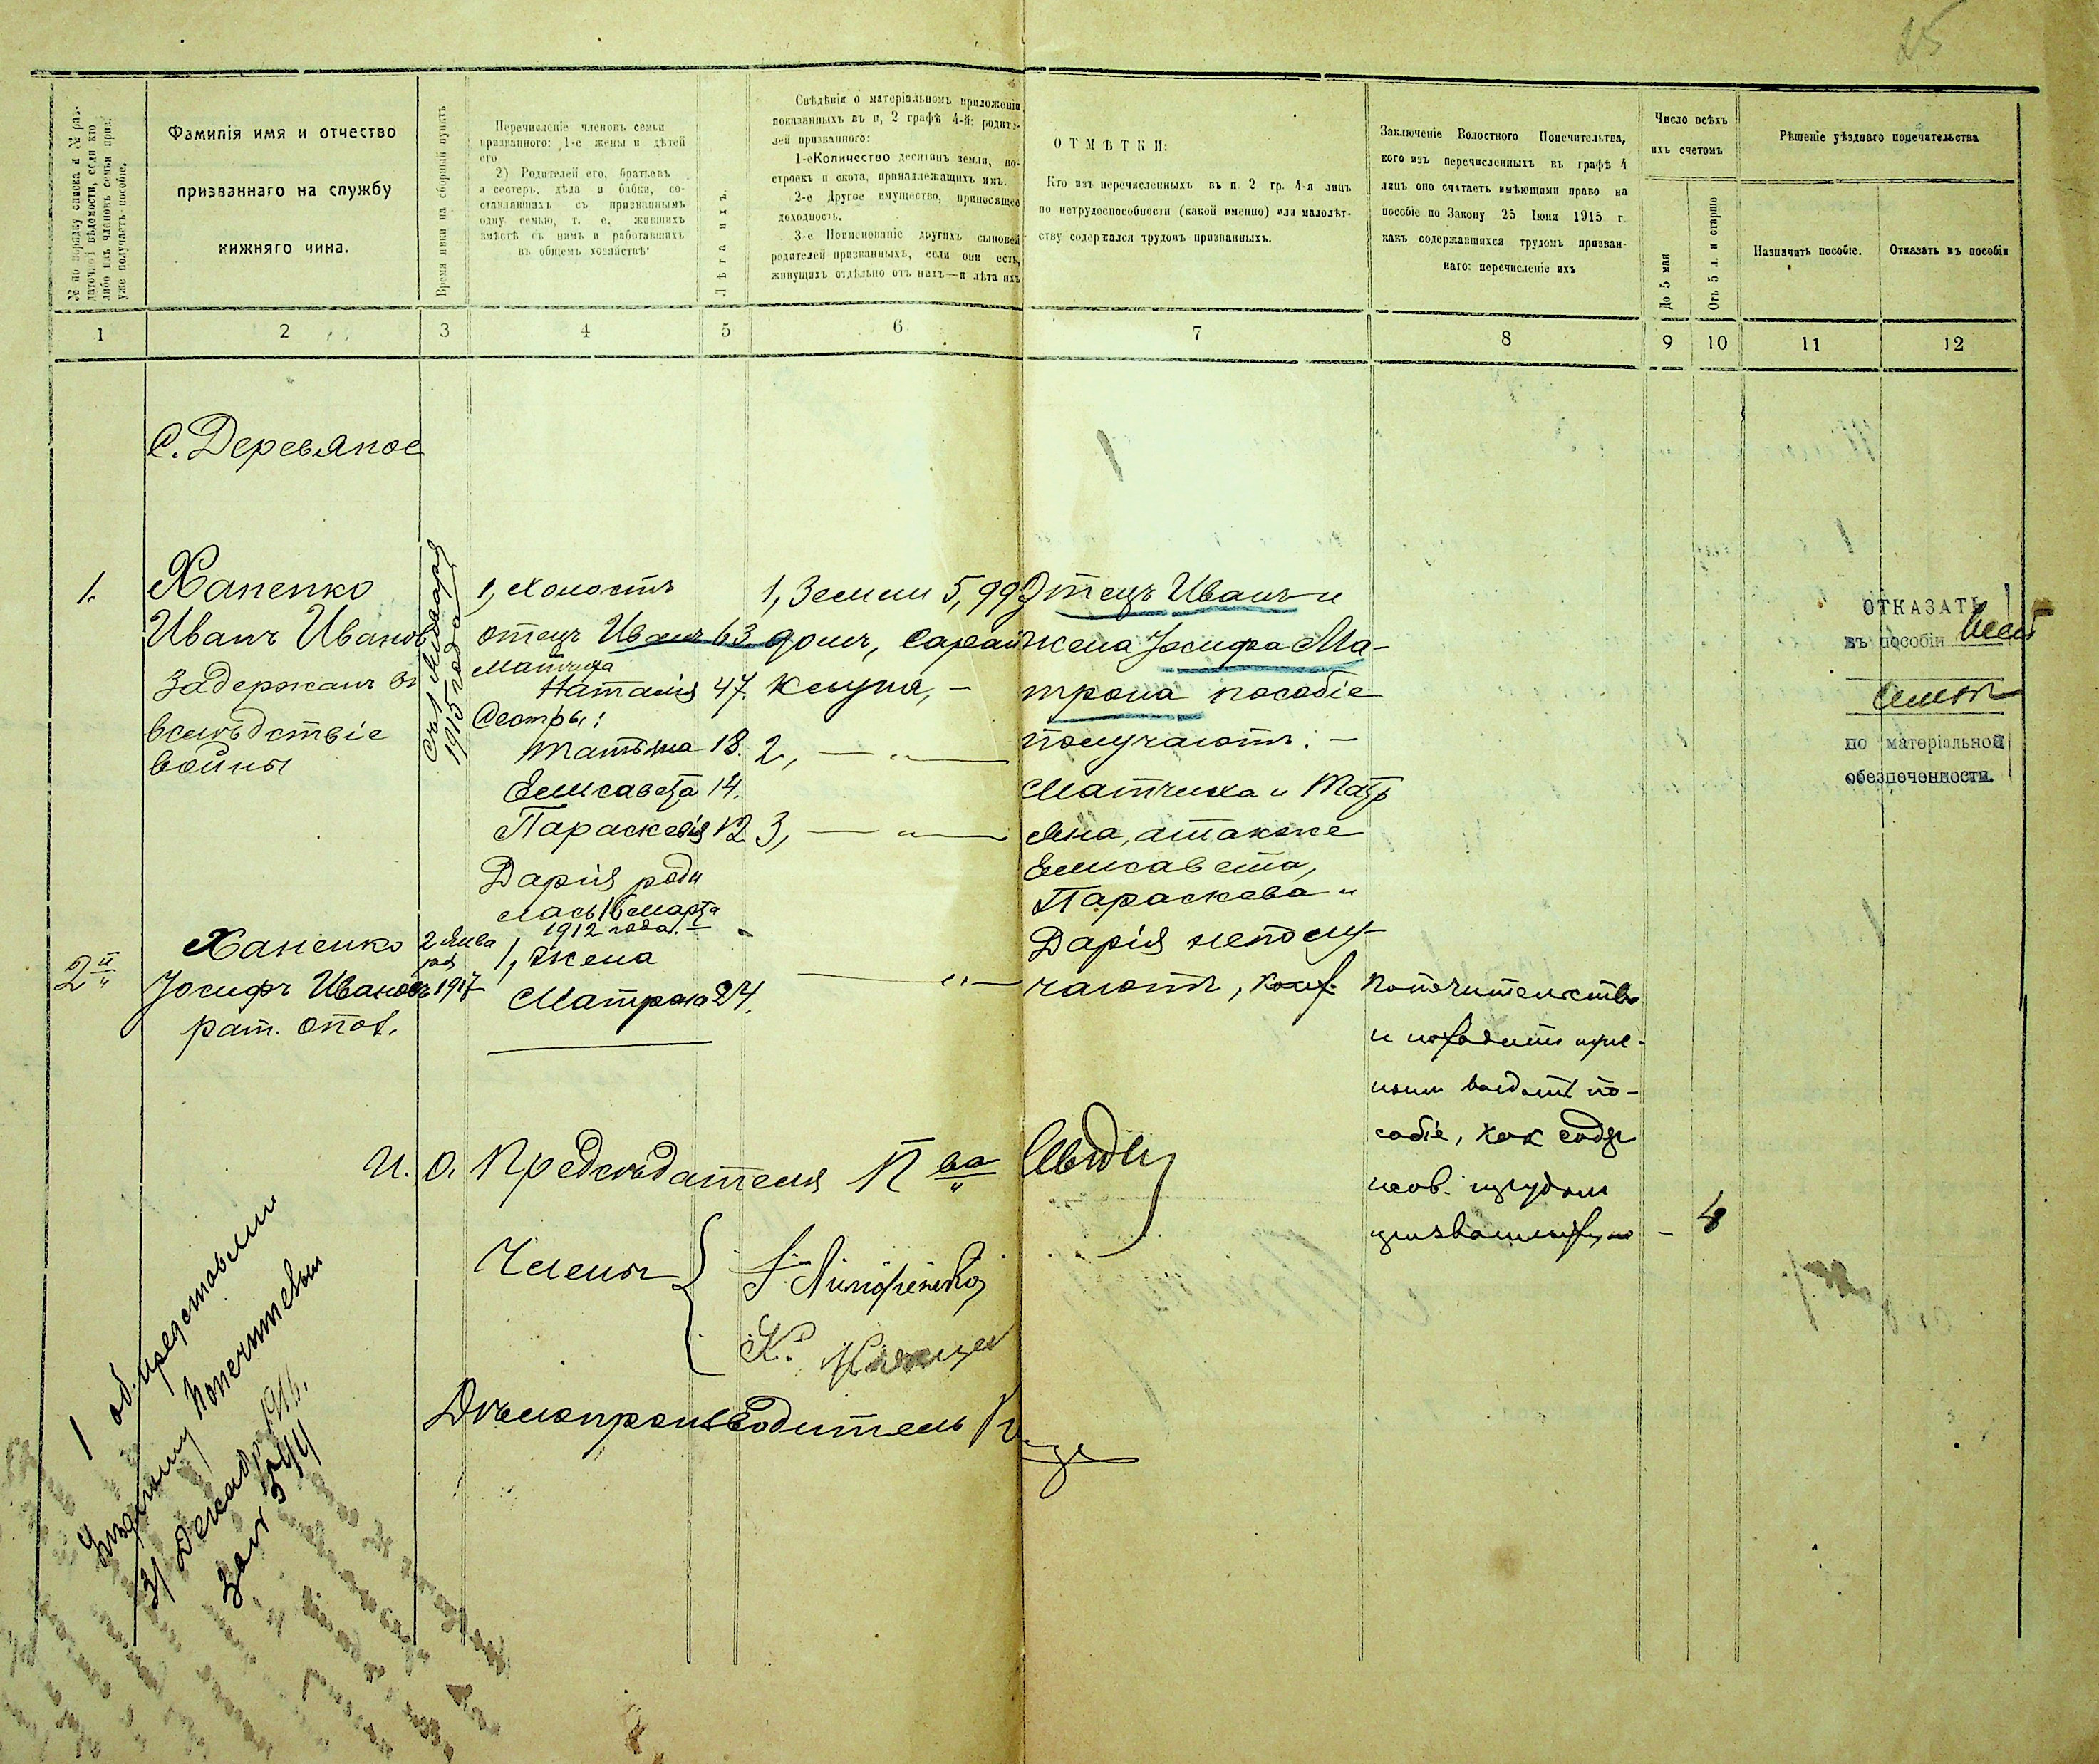 25
№ по порядку списка и № раз-
даточной вѣдомости, если кто
либо изъ членовъ семьи приз.
уже получаетъ пособіе.
Фамилія имя и отчество
призваннаго на службу
нижняго чина.
Время явки на сборный пунктъ
Перечисленіе членовъ семьи
призваннаго: 1-е жены и дѣтей
его
2) Родителей его, братьевъ
и сестеръ, дѣда и бабки, со-
ставлявшихъ съ призваннымъ
одну семью, т. е. жившихъ
вмѣстѣ съ нимъ и работавшихъ
въ общемъ хозяйствѣ
Лѣта ихъ.
Свѣдѣнія о матеріальномъ приложеніи
показанныхъ въ п, 2 графѣ 4-й: родите-
лей призваннаго:
1-еКоличество десятинъ земли, по-
строекъ и скота, принадлежащихъ имъ.
2-е Другое имущество, приносящее
доходность.
3-е Поименованіе другихъ сыновей
родителей призванныхъ, если они есть,
живущихъ отдѣльно отъ нихъ—и лѣта ихъ
ОТМѢТКИ:
Кто изъ перечисленныхъ въ п 2 гр. 4-я лицъ
по нетрудоспособности (какой именно) или малолѣт-
ству содержался трудомъ призванныхъ.
Заключеніе Волостного Попечительтва,
кого изъ перечисленныхъ въ графѣ 4
лицъ оно считаетъ имѣющими право на
пособіе по Закону 25 Іюня 1915 г.
какъ содержавшихся трудомъ призван-
наго: перечисленіе ихъ
Число всѣхъ
ихъ счетомъ
До 5 мая
Отъ 5 л. и старше
Рѣшеніе уѣзднаго попечительства
Назначить пособіе.
Отказать въ пособіи
1 2 3 4 5 6 7 8 9 10 11 12
С. Деревяное
1.
Ханенко
Иванъ Иванов
Задержанъ
вслѣдствіе
войны
1915 года
1, холостъ
отецъ Иванъ 63
мачиха
Наталія 47.
Сестры:
Татьяна 18.
Елисавета 14.
Параскевія 12
Дарія роди
лась 16 марта
1912 года.
1, Земли 5,99
домъ, сарай
клуня, —
2, — " —
3, — " —
Отецъ Иванъ и
жена Іосифа Ма-
трона пособіе
получаютъ. —
Матчиха и Тать
яна, атакже
Елисавета,
Параскева и
Дарія неполу-
чаютъ,
ОТКАЗАТЬ
въ пособіи всей
семьѣ
по матеріальной
обезпеченности.
2й
Ханенко
Іосифъ Ивановъ
рат. опол.
2 Янва
ря
1917
1, Жена
Матрона 24.
— " —
попечительство
выдать по-
собіе, как
— 4
И. О. Предсѣдателя П ва
Члены
К.
Дѣлопроизводитель
представлен
Уѣздному попечительст
31 Декабр 1916.